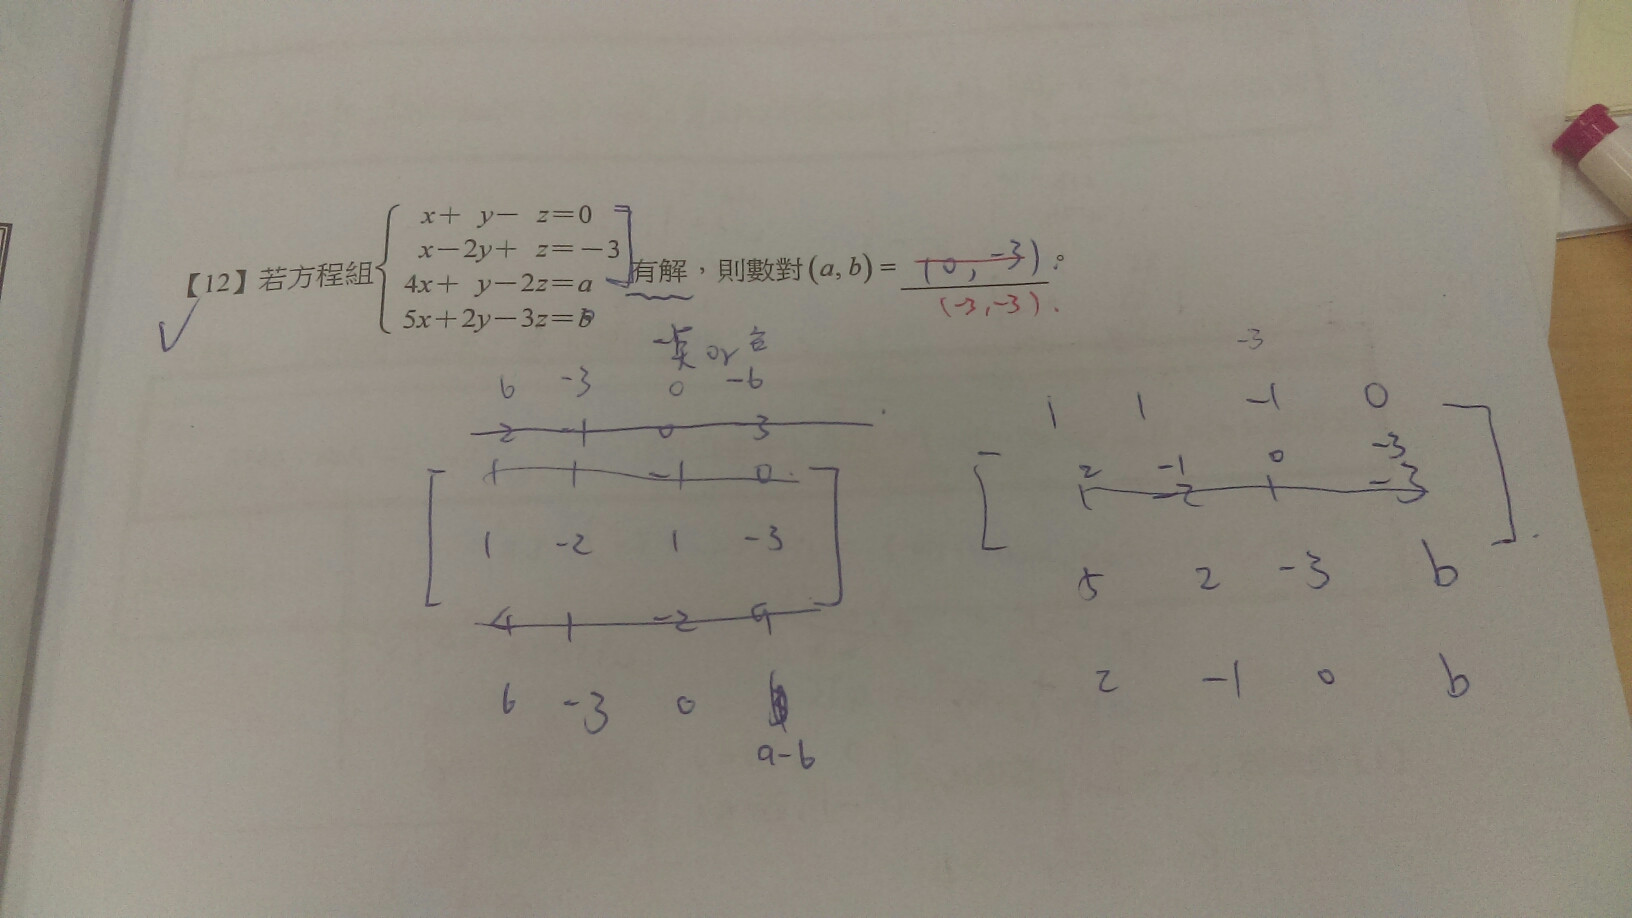 x+ y− z=0
x−2y+ z=−3
【12】若方程組 有解,則數對(a, b)= (0, -3)。
4x+ y−2z=a
5x+2y−3z=b
(-3,-3).
or
6 -3 0 -6
2 -1 0 3
1 1 -1 0
1 -2 1 -3
4 1 -2 a
6 -3 0
a-b
-3
1 1 -1 0
2 -1 0 -3
1 -2 1 -3
5 2 -3 b
2 -1 0 b